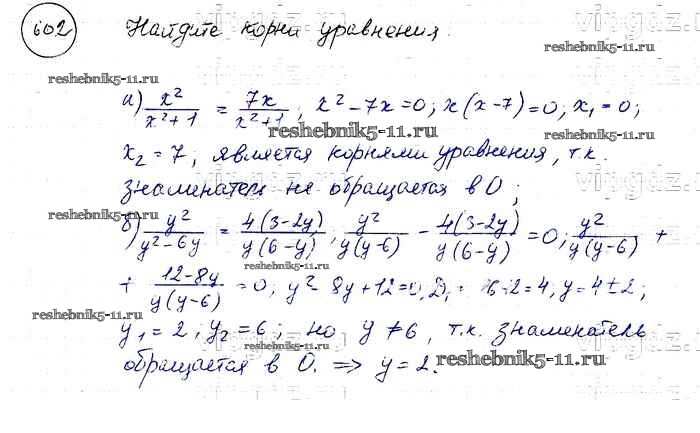 602 Найдите корни уравнения.
vipgdz.
reshebnik5-11.ru reshebnik5-11.ru
а) x²/(x²+1) = 7x/(x²+1); x²-7x=0; x(x-7)=0, x₁=0;
reshebnik5-11.ru reshebnik5-11.ru
x₂=7, является корнями уравнения, т.к.
знаменатель не обращается в 0;
reshebnik5-11.ru reshebnik5-11.ru
б) y²/(y²-6y) = 4(3-2y)/(y(6-y)); y²/(y(y-6)) - 4(3-2y)/(y(6-y)) = 0; y²/(y(y-6)) +
reshebnik5-11.ru
+ (12-8y)/(y(y-6)) = 0; y²-8y+12=0, D₁= -12=4, y=4±2;
reshebnik5-11.ru
y₁=2, y₂=6; но y≠6, т.к. знаменатель
reshebnik5-11.ru
обращается в 0. ⇒ y=2.